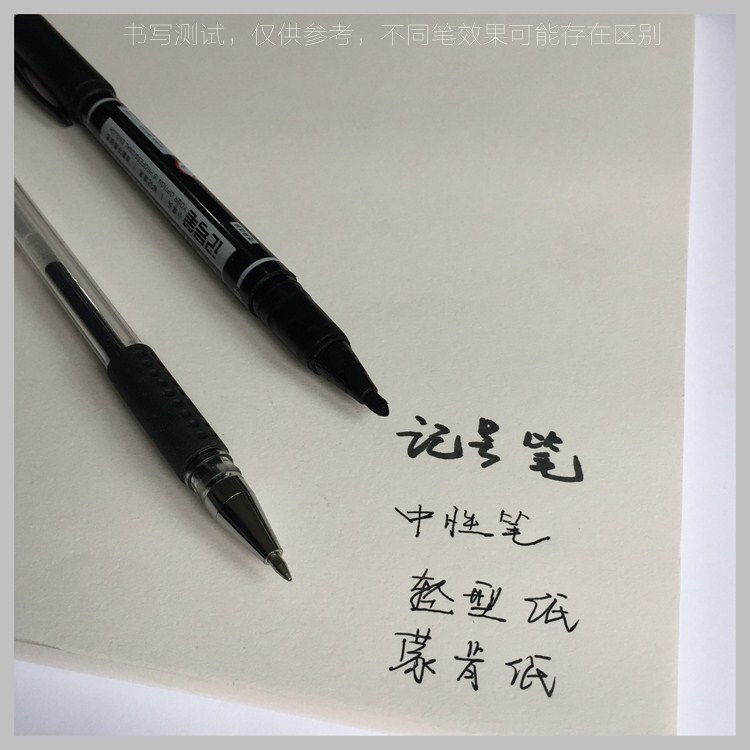 书写测试，仅供参考，不同笔效果可能存在区别
记号笔
记号笔
中性笔
轻型纸
蒙肯纸